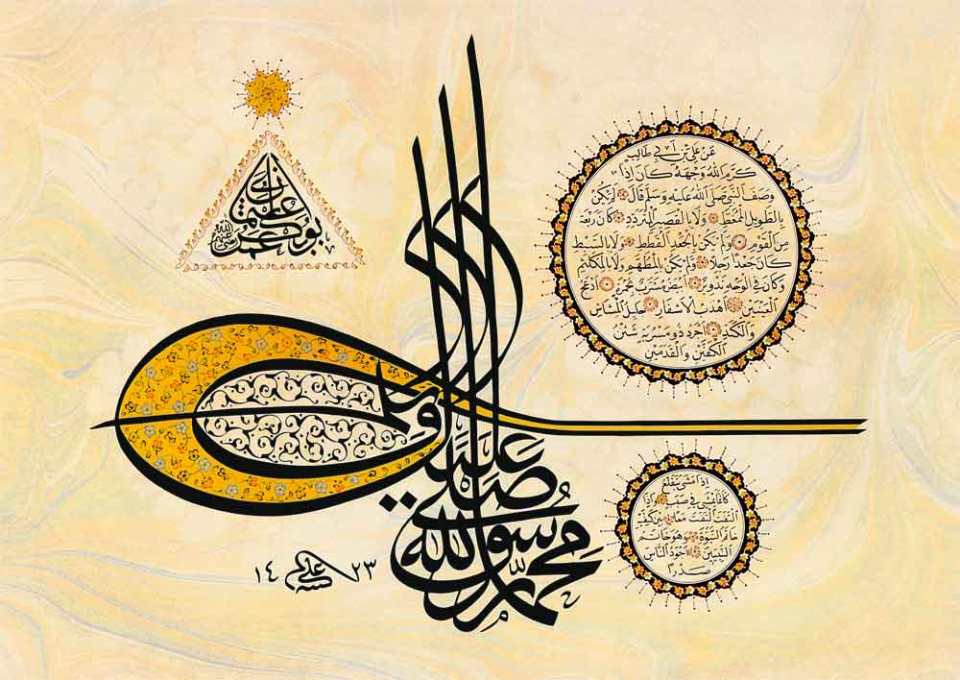 أبو بكر عمر عثمان علي
رضي الله
عن علي بن أبي طالب
كرم الله وجهه كان إذا
وصف النبي صلى الله عليه وسلم قال لم يكن
بالطويل الممغط ولا بالقصير المتردد كان ربعة
من القوم ولم يكن بالجعد القطط ولا بالسبط
كان جعدا رجلا ولم يكن بالمطهم ولا بالمكلثم
وكان في الوجه تدوير أبيض مشرب بحمرة أدعج
العينين أهدب الأشفار جليل المشاش
والكتد أجرد ذو مسربة شثن
الكفين والقدمين
محمد رسول الله صلى الله عليه وسلم
إذا مشى يتقلع
كأنما يمشي في صبب إذا
التفت التفت معا بين كتفيه
خاتم النبوة وهو خاتم
النبيين أجود الناس
صدرا
علي
١٤٢٣